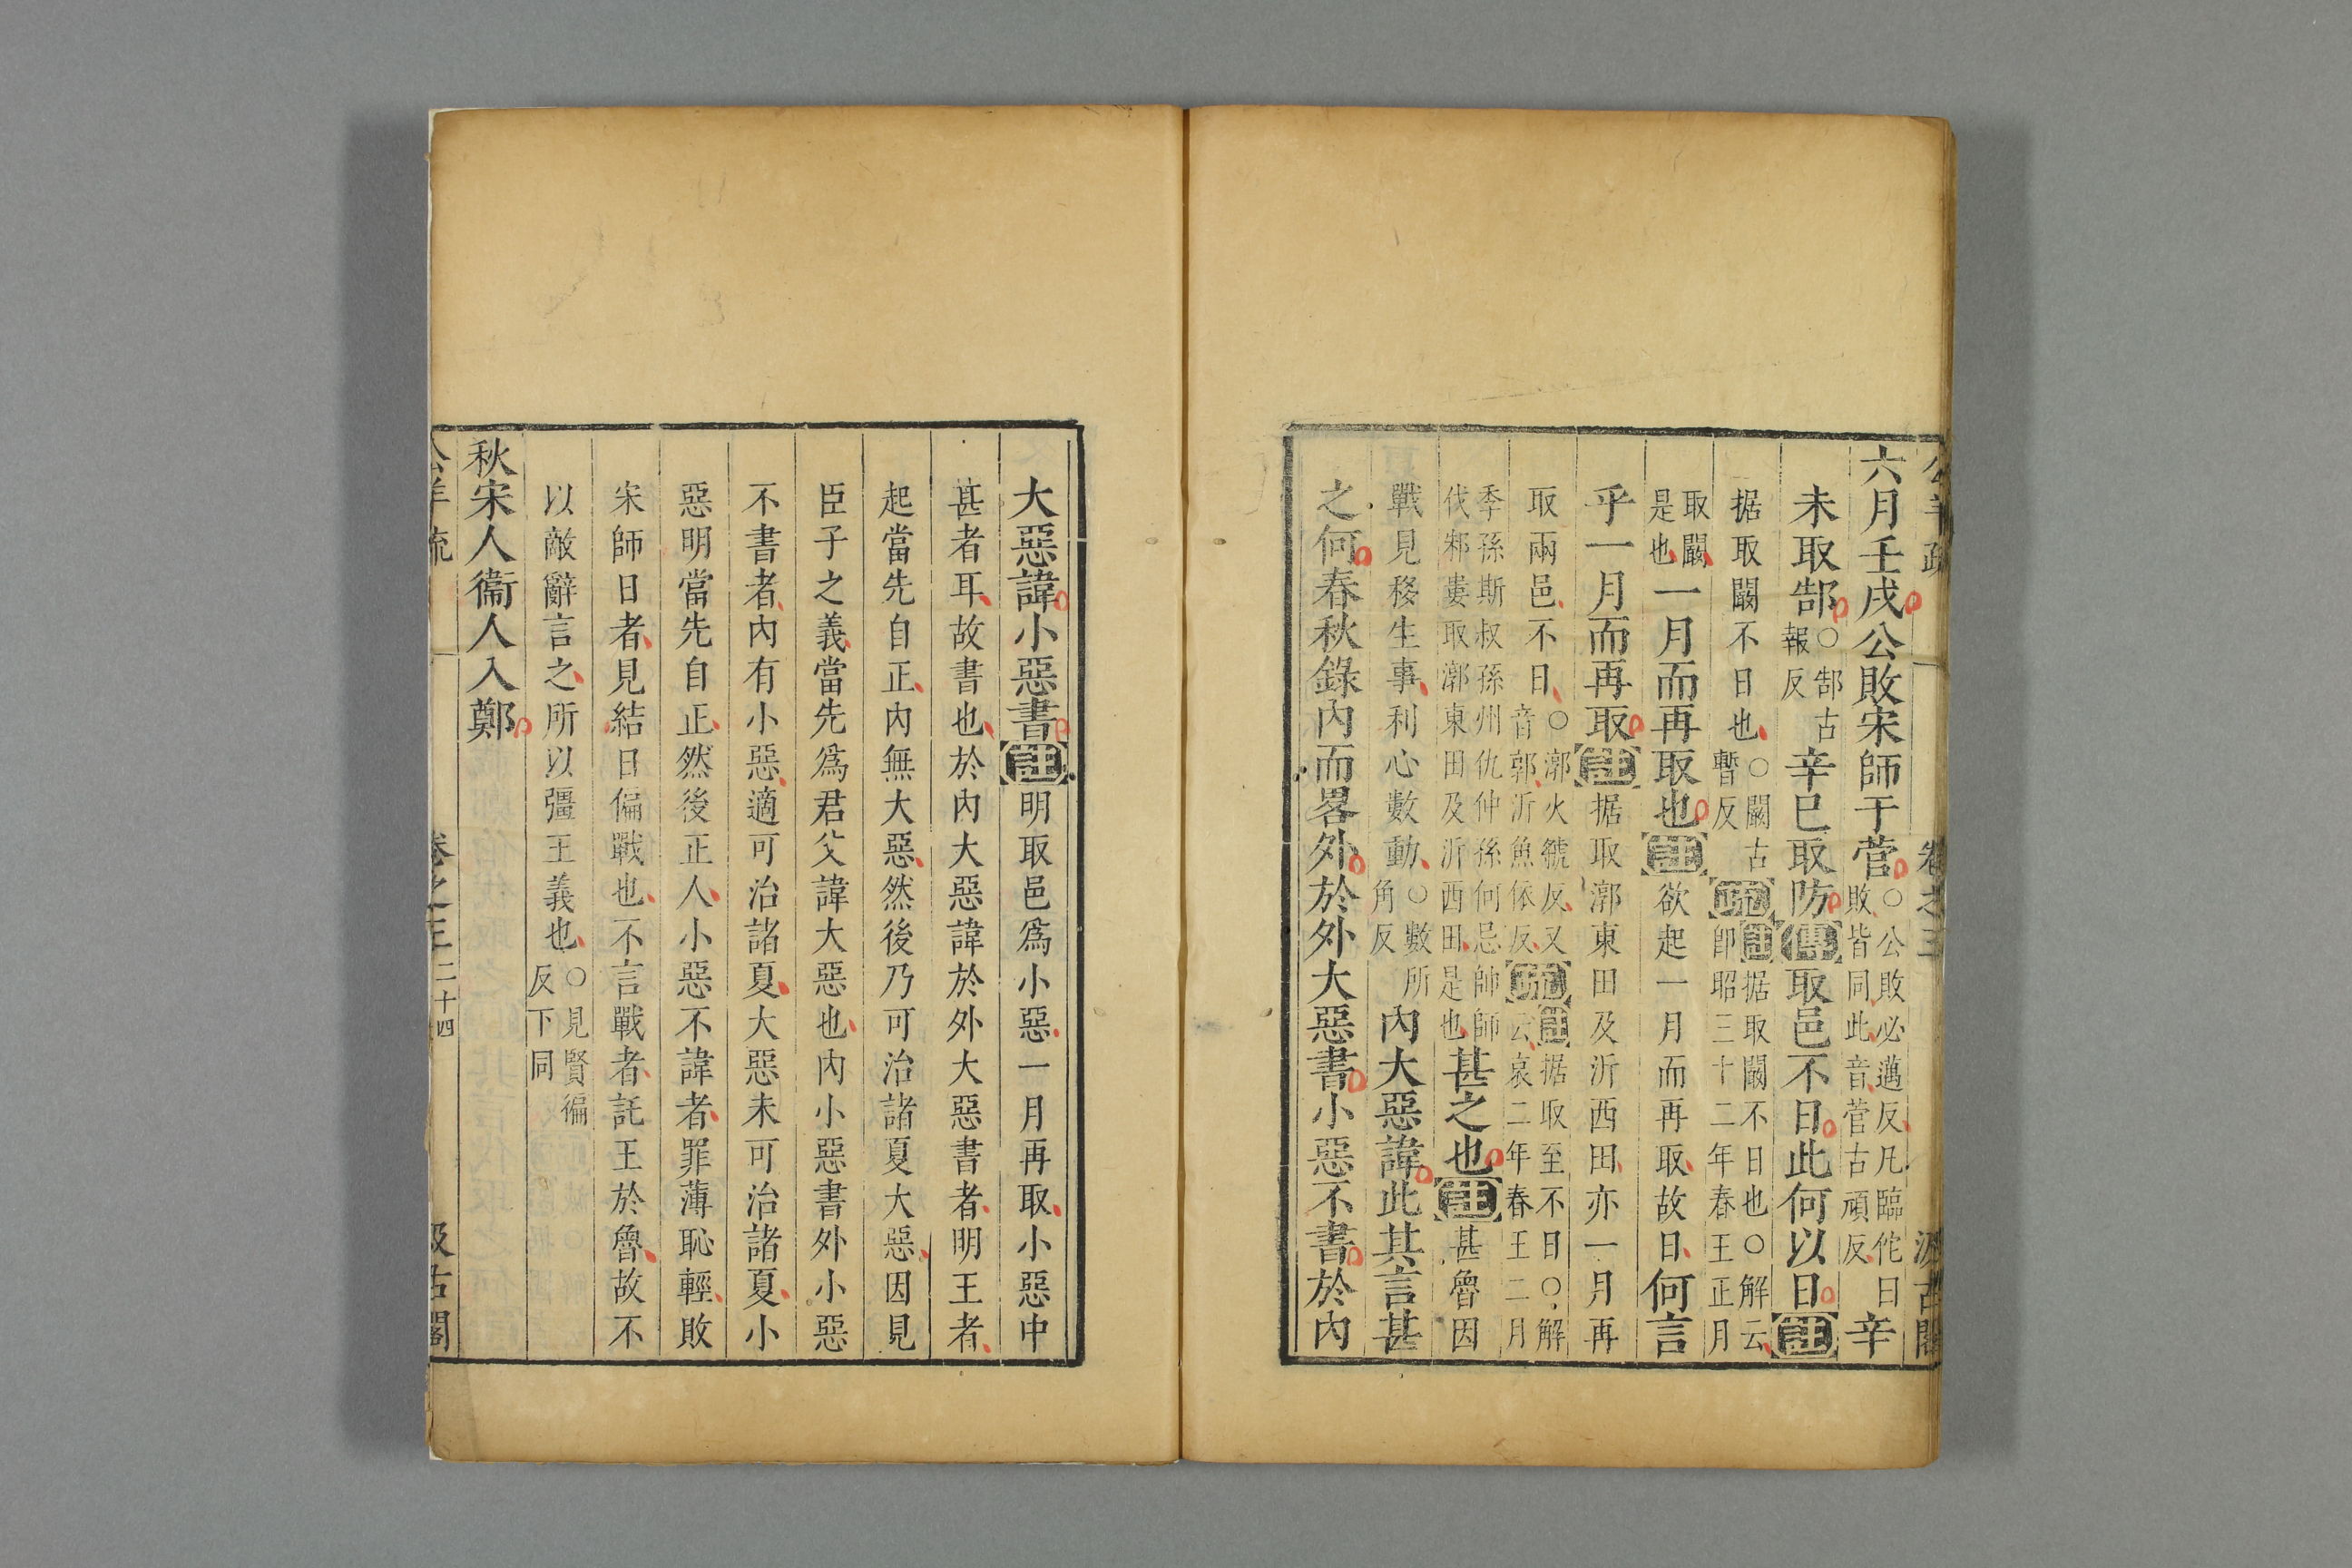 公羊疏 卷之三 汲古閣
六月壬戌公敗宋師于菅○公敗必邁反凡臨佗曰敗皆同此音菅古頑反辛
未取郜○郜古報反辛巳取防傳取邑不日此何以日註
据取闞不日也○闞古暫反疏註据取闞不日也○解云即昭三十二年春王正月
取闞是也一月而再取也註欲起一月而再取故日何言
乎一月而再取註据取漷東田及沂西田亦一月再
取兩邑不日○漷火虢反又音郭沂魚依反疏註据取至不日○解云哀二年春王二月
季孫斯叔孫州仇仲孫何忌帥師伐邾婁取漷東田及沂西田是也甚之也註甚魯因
戰見移生事利心數動○數所角反內大惡諱此其言甚
之何春秋錄內而畧外於外大惡書小惡不書於內
大惡諱小惡書註明取邑爲小惡一月再取小惡中
甚者耳故書也於內大惡諱於外大惡書者明王者
起當先自正內無大惡然後乃可治諸夏大惡因見
臣子之義當先爲君父諱大惡也內小惡書外小惡
不書者內有小惡適可治諸夏大惡未可治諸夏小
惡明當先自正然後正人小惡不諱者罪薄恥輕敗
宋師日者見結日偏戰也不言戰者託王於魯故不
以敵辭言之所以彊王義也○見賢徧反下同
秋宋人衞人入鄭
公羊疏 卷之三 二十四 汲古閣